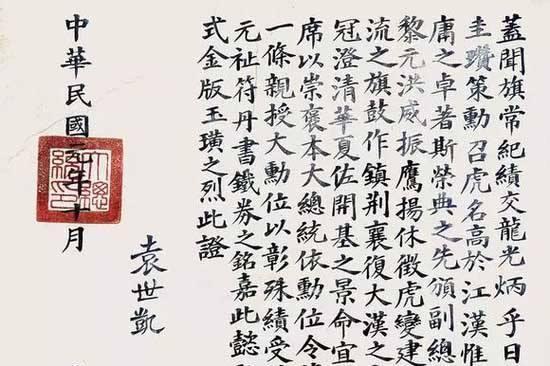 蓋聞旗常紀績交龍光炳乎日
圭瓚策勳召虎名高於江漢惟
庸之卓著斯榮典之先頒副總
黎元洪威振鷹揚休徵虎變建
流之旗鼓作鎮荊襄復大漢之
冠澄清華夏佐開基之景命宜
席以崇褒本大總統依勳位令
一條親授大勳位以彰殊績受
元祉符丹書鐵券之銘嘉此懿
式金版玉璜之烈此證
袁世凱
中華民國元年十月
大總統印